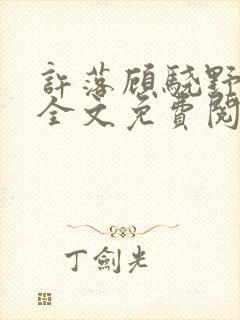 許落顧驍野
全文免費閱
丁劍光